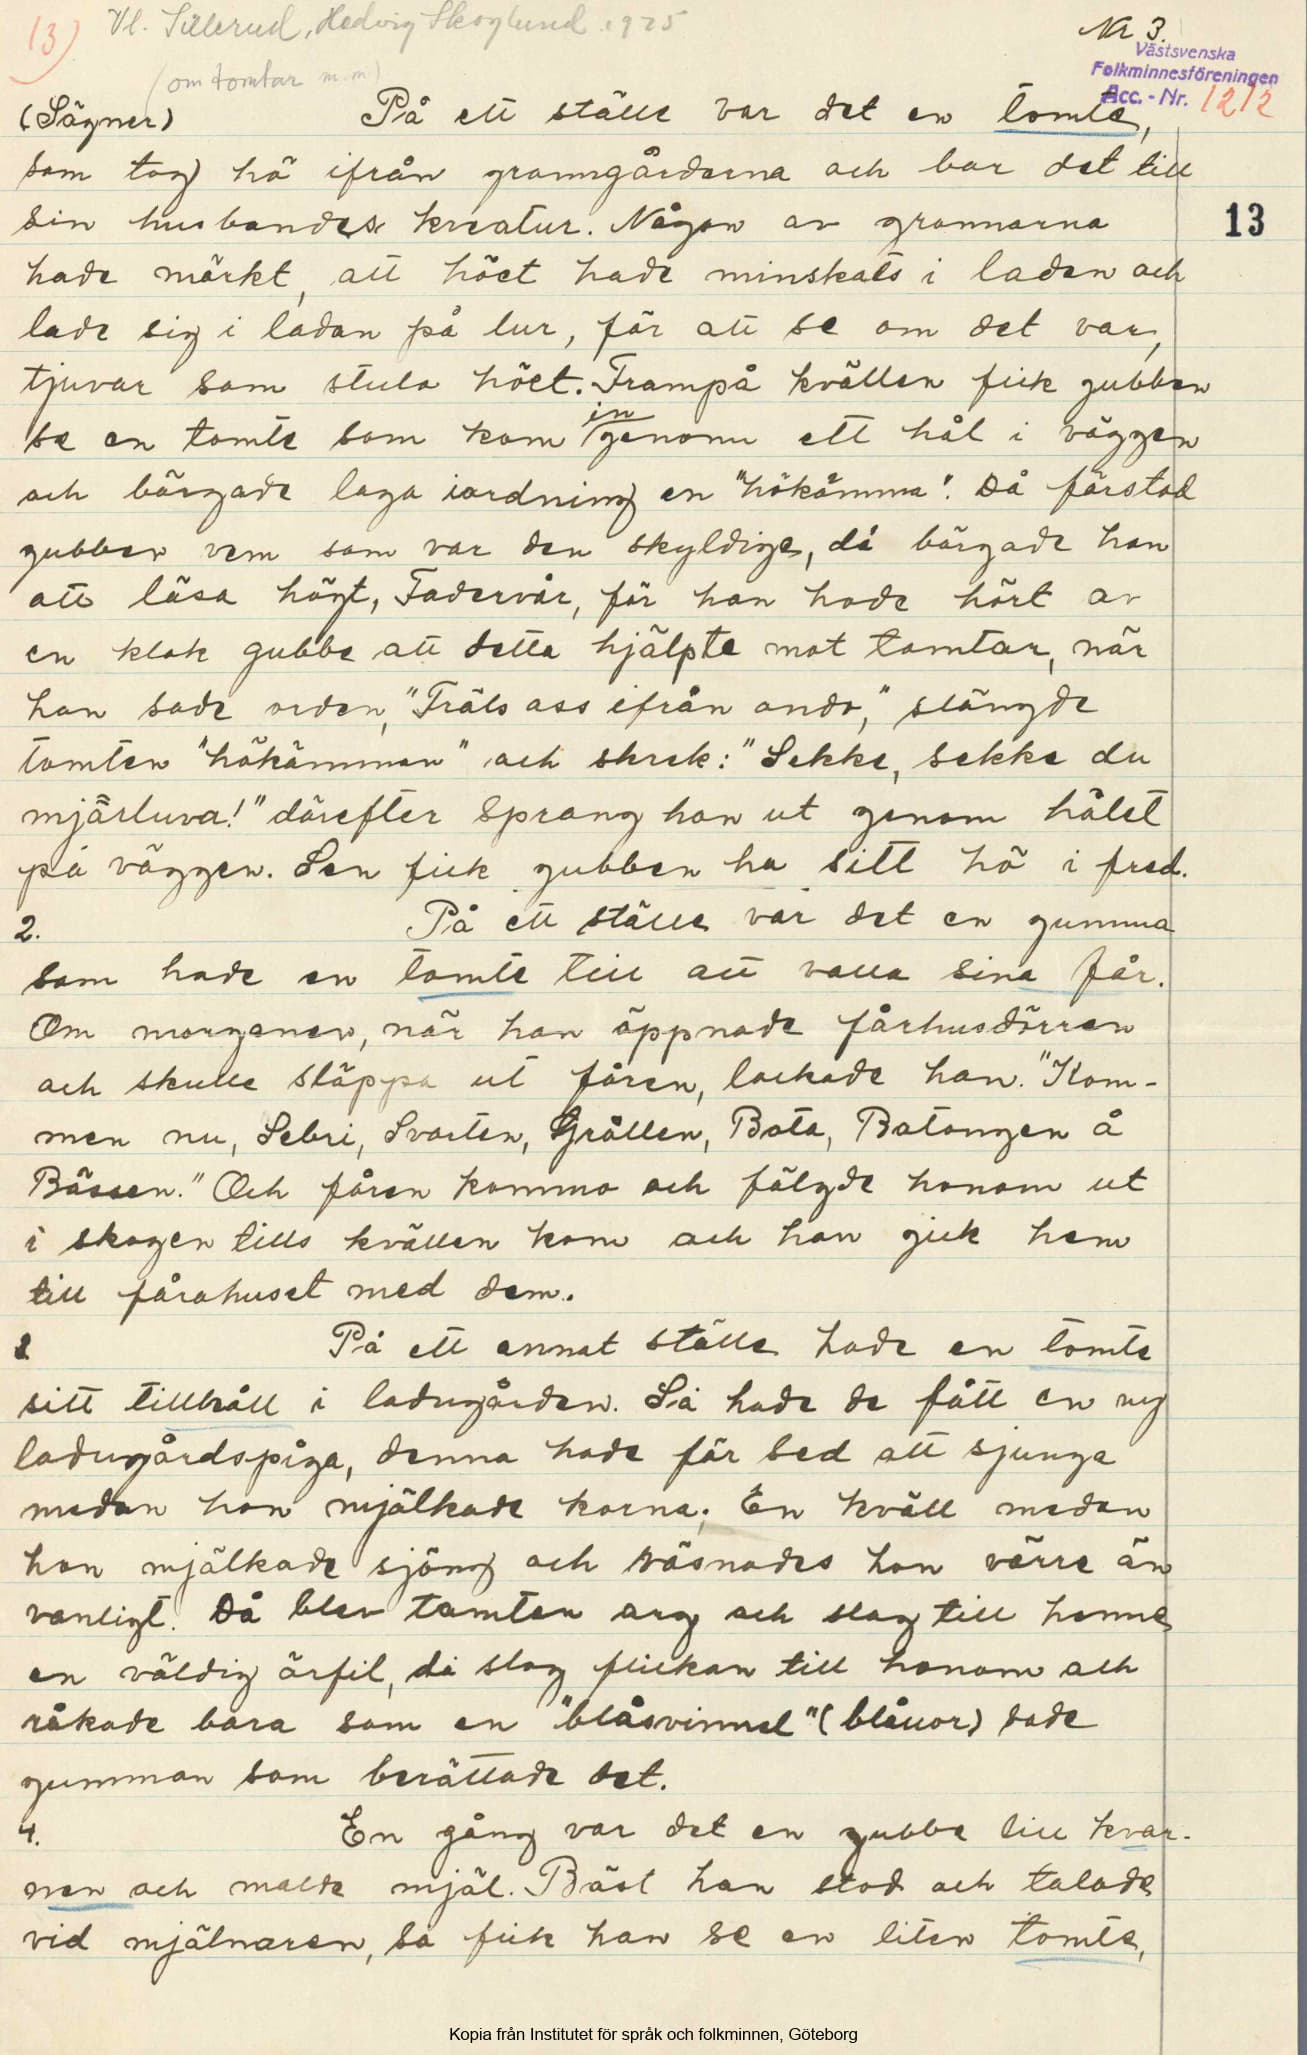 13) Vl. Sillerud, Hedvig Skoglund 1925
Nr 3.
(om tomtar m.m)
Västsvenska
Folkminnesföreningen
Acc.-Nr. 1212
(Sägner) På ett ställe var det en tomte,
som tog hö ifrån granngårdarna och bar det till
sin husbondes kreatur. Någon av grannarna
13
hade märkt, att höet hade minskats i ladan och
lade sig i ladan på lur, för att se om det var
tjuvar som stulo höet. Frampå kvällen fick gubben
se en tomte som kom in genom ett hål i väggen
och börgade laga iordning en "hökämma". Då förstod
gubben vem som var den skyldige, då börgade han
att läsa högt, Fadervår, för han hade hört av
en klok gubbe att detta hjälpte mot tomtar, när
han sade orden, "Fräls oss ifrån ondo," slängde
tomten "hökämman" och skrek: "Sekke, sekke du
mjärluva!" därefter sprang han ut genom hålet
på väggen. Sen fick gubben ha sitt hö i fred.
2. På ett ställe var det en gumma
som hade en tomte till att valla sina får.
Om morgonen, när han öppnade fårhusdörren
och skulle släppa ut fåren, lockade han. "Kom-
men nu, Sebri, Svarten, Grållen, Bota, Botongen å
Bässen." Och fåren kommo och följde honom ut
i skogen tills kvällen kom och han gick hem
till fårahuset med dem.
3. På ett annat ställe hade en tomte
sitt tillhåll i ladugården. Så hade de fått en ny
ladugårdspiga, denna hade för sed att sjunga
medan hon mjölkade korna. En kväll medan
hon mjölkade sjöng och väsnades hon värre än
vanligt. Då blev tomten arg och slog till henne
en väldig örfil, då slog flickan till honom och
råkade bara som en "blåsvimmel" (blånor) sade
gumman som berättade det.
4. En gång var det en gubbe till kvar-
nen och malde mjöl. Bäst han stod och talade
vid mjölnaren, så fick han se en liten tomte,
Kopia från Institutet för språk och folkminnen, Göteborg